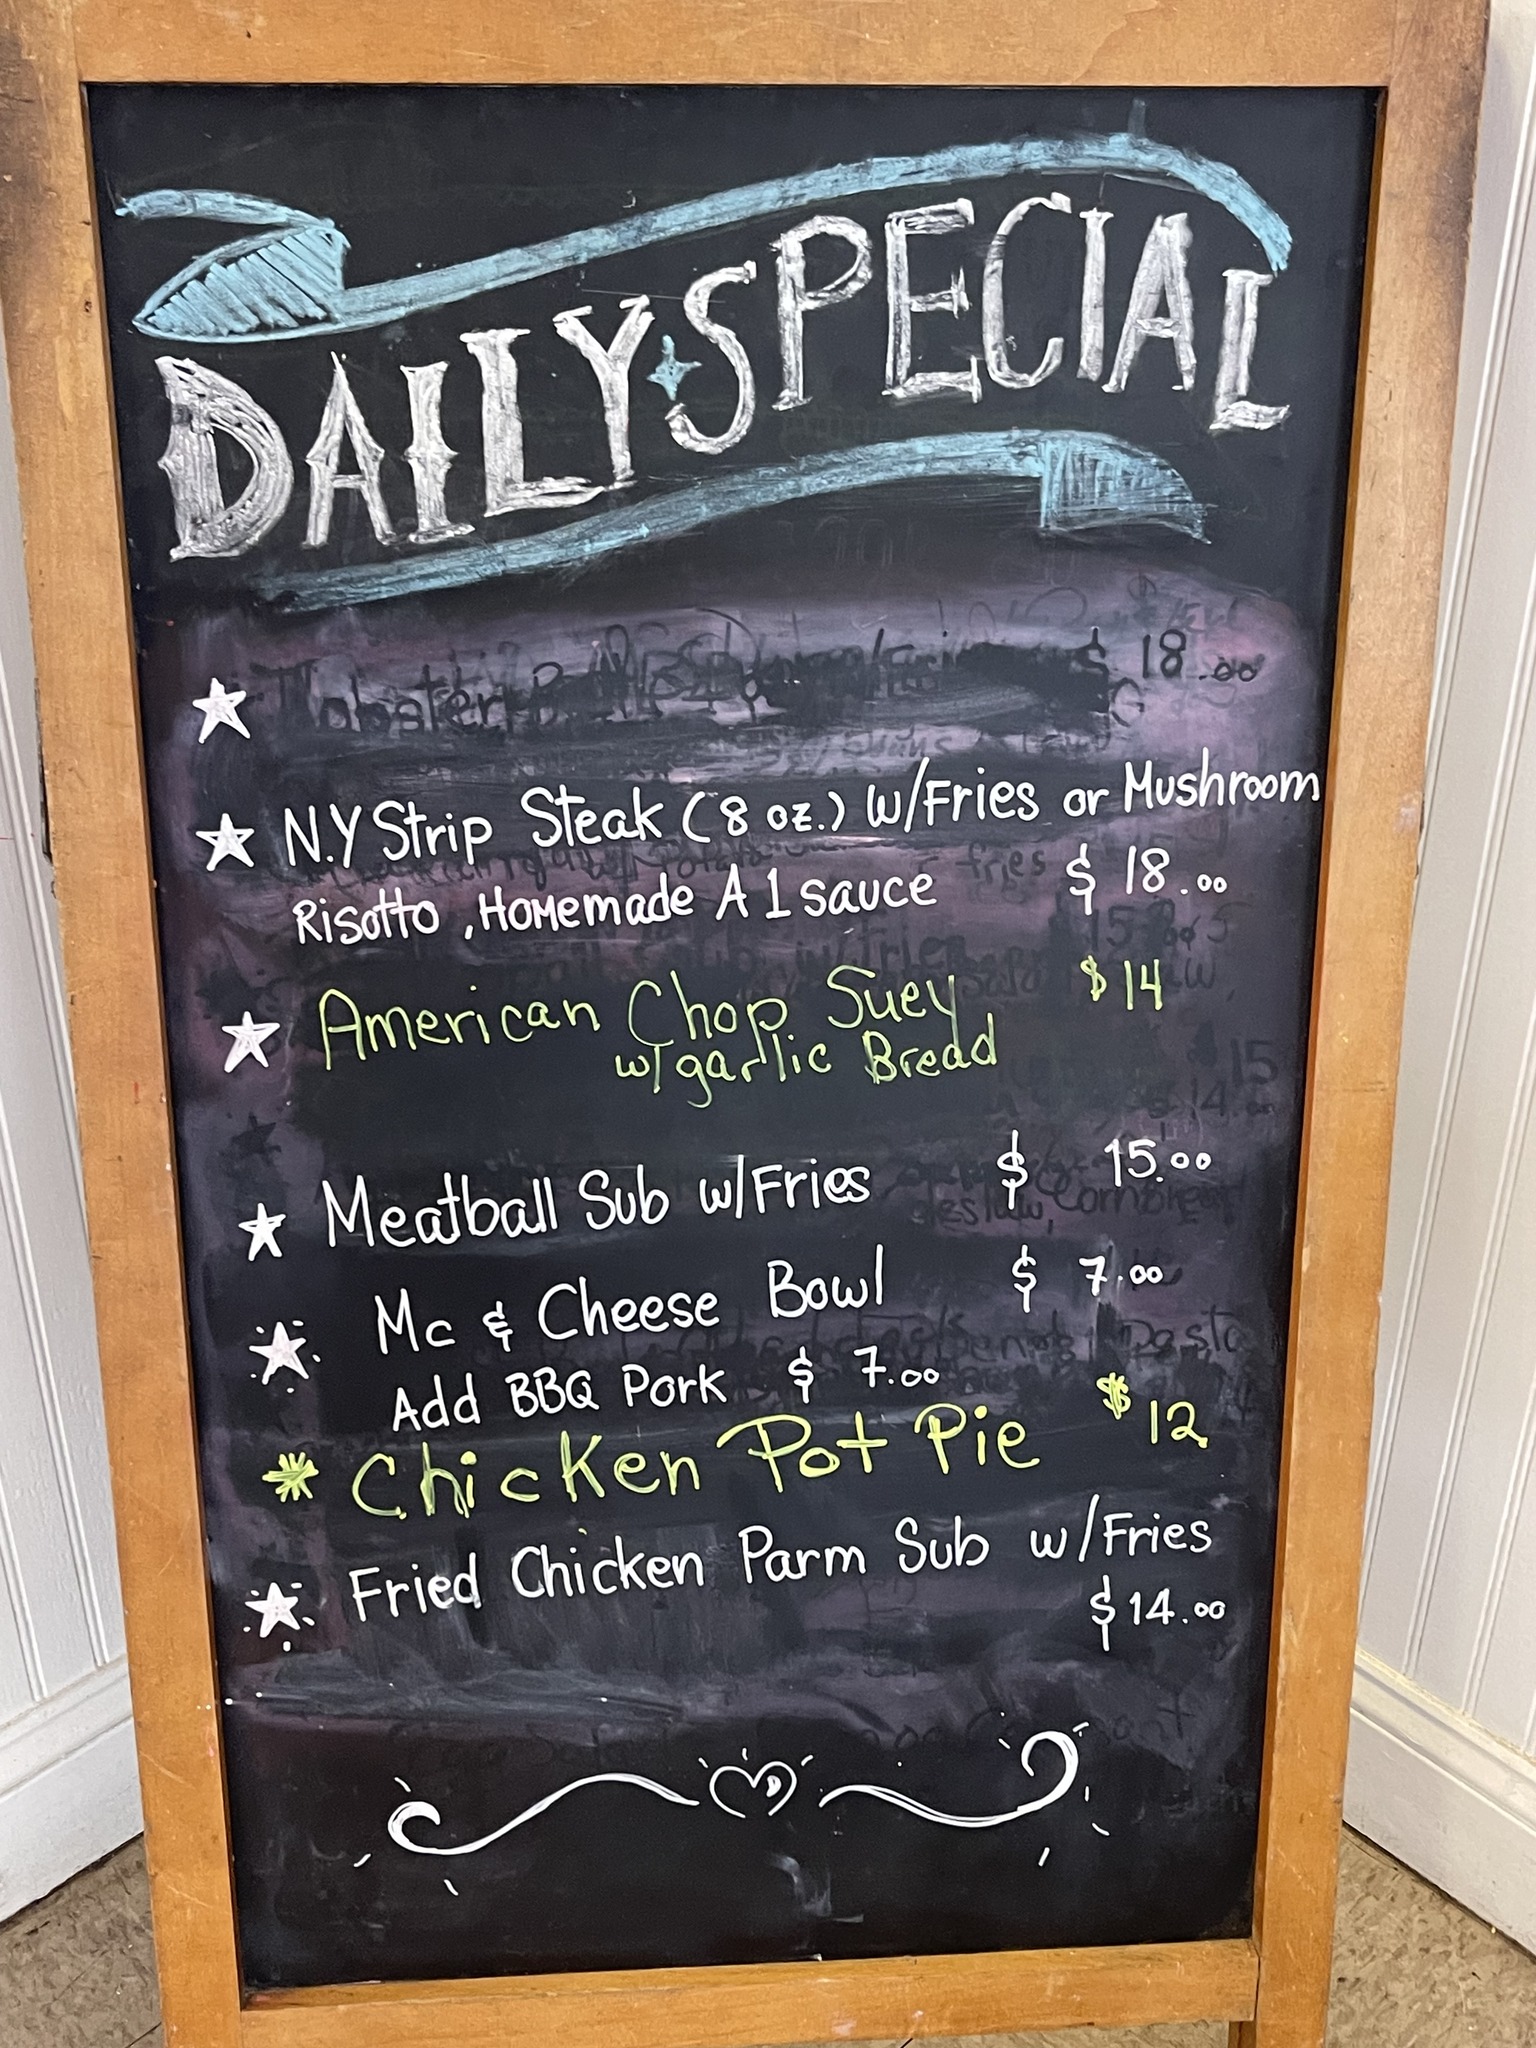 DAILY SPECIAL
$ 18.00
N.Y Strip Steak (8 oz.) w/Fries or Mushroom
Risotto, Homemade A 1 sauce $ 18.00
American Chop Suey $14
w/garlic Bread
Meatball Sub w/Fries $ 15.00
Mc & Cheese Bowl $ 7.00
Add BBQ Pork $ 7.00
Chicken Pot Pie $12
Fried Chicken Parm Sub w/Fries
$14.00